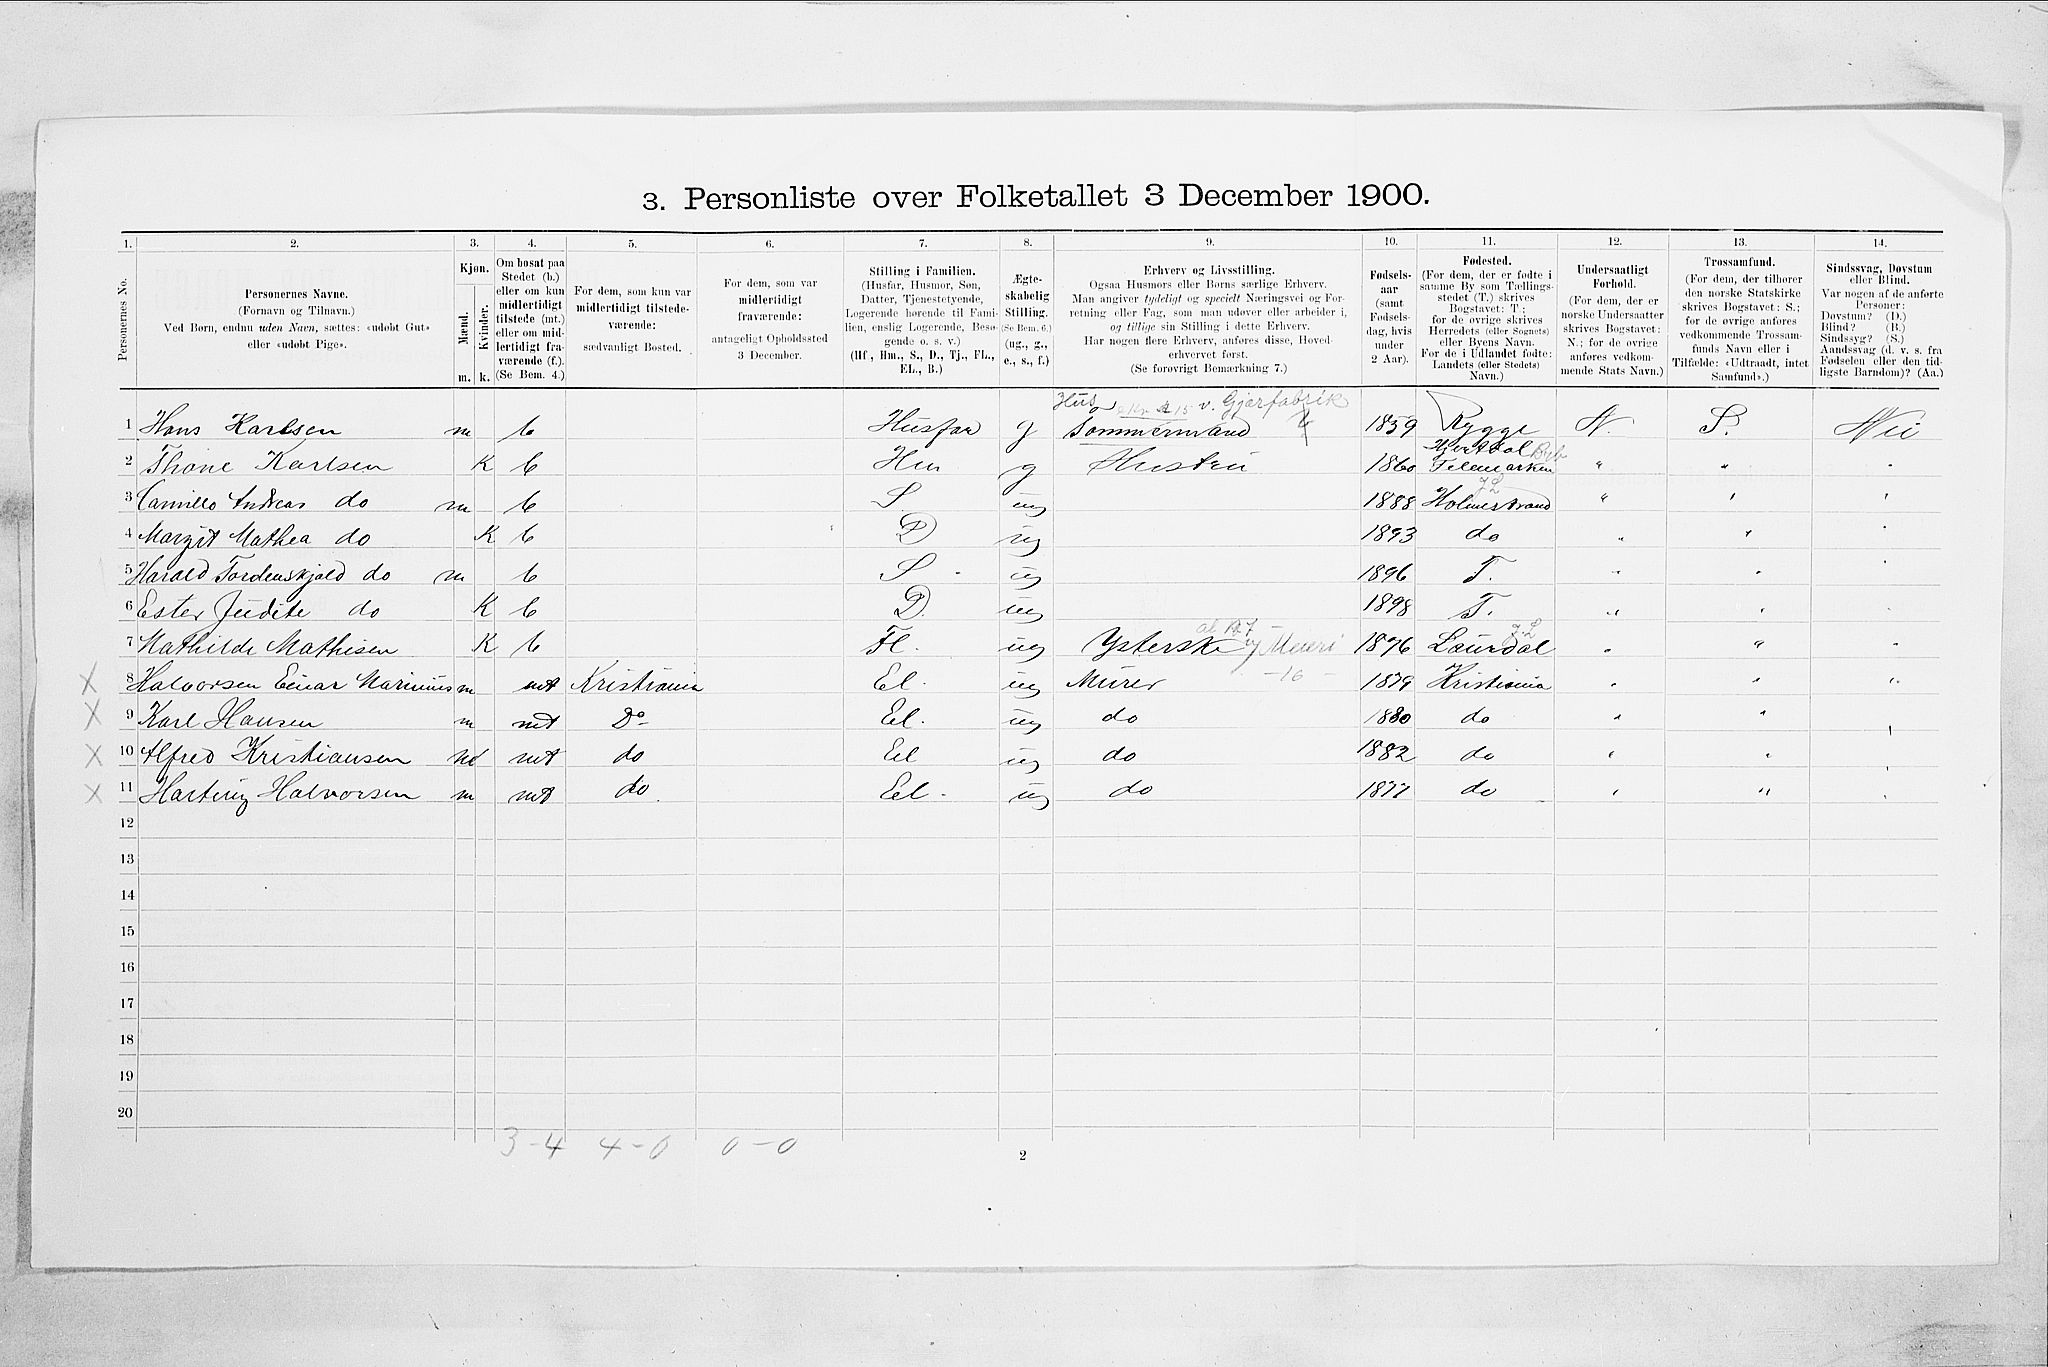 3. Personliste over Folketallet 3 December 1900.
1. 2. 3. 4. 5. 6. 7. 8. 9. 10. 11. 12. 13. 14.
Personernes No.
Personernes Navne.
(Fornavn og Tilnavn.)
Ved Børn, endnu uden Navn, sættes: «udøbt Gut»
eller «udøbt Pige».
Kjøn.
Mænd.
Kvinder.
m. k.
Om bosat paa
Stedet (b.)
eller om kun
midlertidigt
tilstede (mt.)
eller om mid-
lertidigt fra-
værende (f.).
(Se Bem. 4.)
For dem, som kun var
midlertidigt tilstede-
værende:
sædvanligt Bosted.
For dem, som var
midlertidigt
fraværende:
antageligt Opholdssted
3 December.
Stilling i Familien.
(Husfar, Husmor, Søn,
Datter, Tjenestetyende,
Logerende hørende til Fami-
lien, enslig Logerende, Besø-
gende o. s. v.)
(Hf., Hm., S., D., Tj., FL.,
EL., B.)
Ægte-
skabelig
Stilling.
(Se Bem. 6.)
(ug., g.,
e., s., f.)
Erhverv og Livsstilling.
Ogsaa Husmors eller Børns særlige Erhverv.
Man angiver tydeligt og specielt Næringsvei og For-
retning eller Fag, som man udøver eller arbeider i,
og tillige sin Stilling i dette Erhverv.
Har nogen flere Erhverv, anføres disse, Hoved-
erhvervet først.
(Se forøvrigt Bemærkning 7.)
Fødsels-
aar
(samt
Fødsels-
dag, hvis
under
2 Aar).
Fødested.
(For dem, der er fødte i
samme By som Tællings-
stedet (T.) skrives
Bogstavet: T.;
for de øvrige skrives
Herredets (eller Sognets)
eller Byens Navn.
For de i Udlandet fødte:
Landets (eller Stedets)
Navn.)
Undersaatligt
Forhold.
(For dem, der er
norske Undersaatter
skrives Bogstavet:
N.; for de øvrige
anføres vedkom-
mende Stats Navn.)
Trossamfund.
(For dem, der tilhører
den norske Statskirke
skrives Bogstavet: S.;
for de øvrige anføres
vedkommende Trossam-
funds Navn eller i
Tilfælde: «Udtraadt, intet
Samfund».)
Sindssvag, Døvstum
eller Blind.
Var nogen af de anførte
Personer:
Døvstum? (D.)
Blind? (B.)
Sindssyg? (S.)
Aandssvag (d. v. s. fra
Fødselen eller den tid-
ligste Barndom)? (Aa.)
Hus v. Gjærfabrik
1 Hans Karlsen m b Husfar g Tømmermand 1859 Rygge N. S. Nei
2 Thone Karlsen K b Hm g Hustru 1860 Hjertdal Telemarken " "
3 Camillo Andreas do m b S. ug 1888 Holmestrand "
4 Margit Mathea do K b D ug 1893 do " "
5 Harald Tordenskjold do m b S ug 1896 T. " "
6 Ester Judite do K b D. ug 1898 T. "
7 Mathilde Mathisen K b Fl. ug Ysterske Meieri 1876 Laurdal " "
X 8 Halvorsen Einar Marinius m mt Kristiania El. ug Murer -16- 1879 Kristiania " "
X 9 Karl Hansen m mt Do El. ug do 1880 do " "
X 10 Alfred Kristiansen m mt do El ug do 1882 do " "
X 11 Hartvig Halvorsen m mt do El. ug do 1877 do "
12
13
14
15
16
17
18
19
20
3-4 4-0 0-0
2